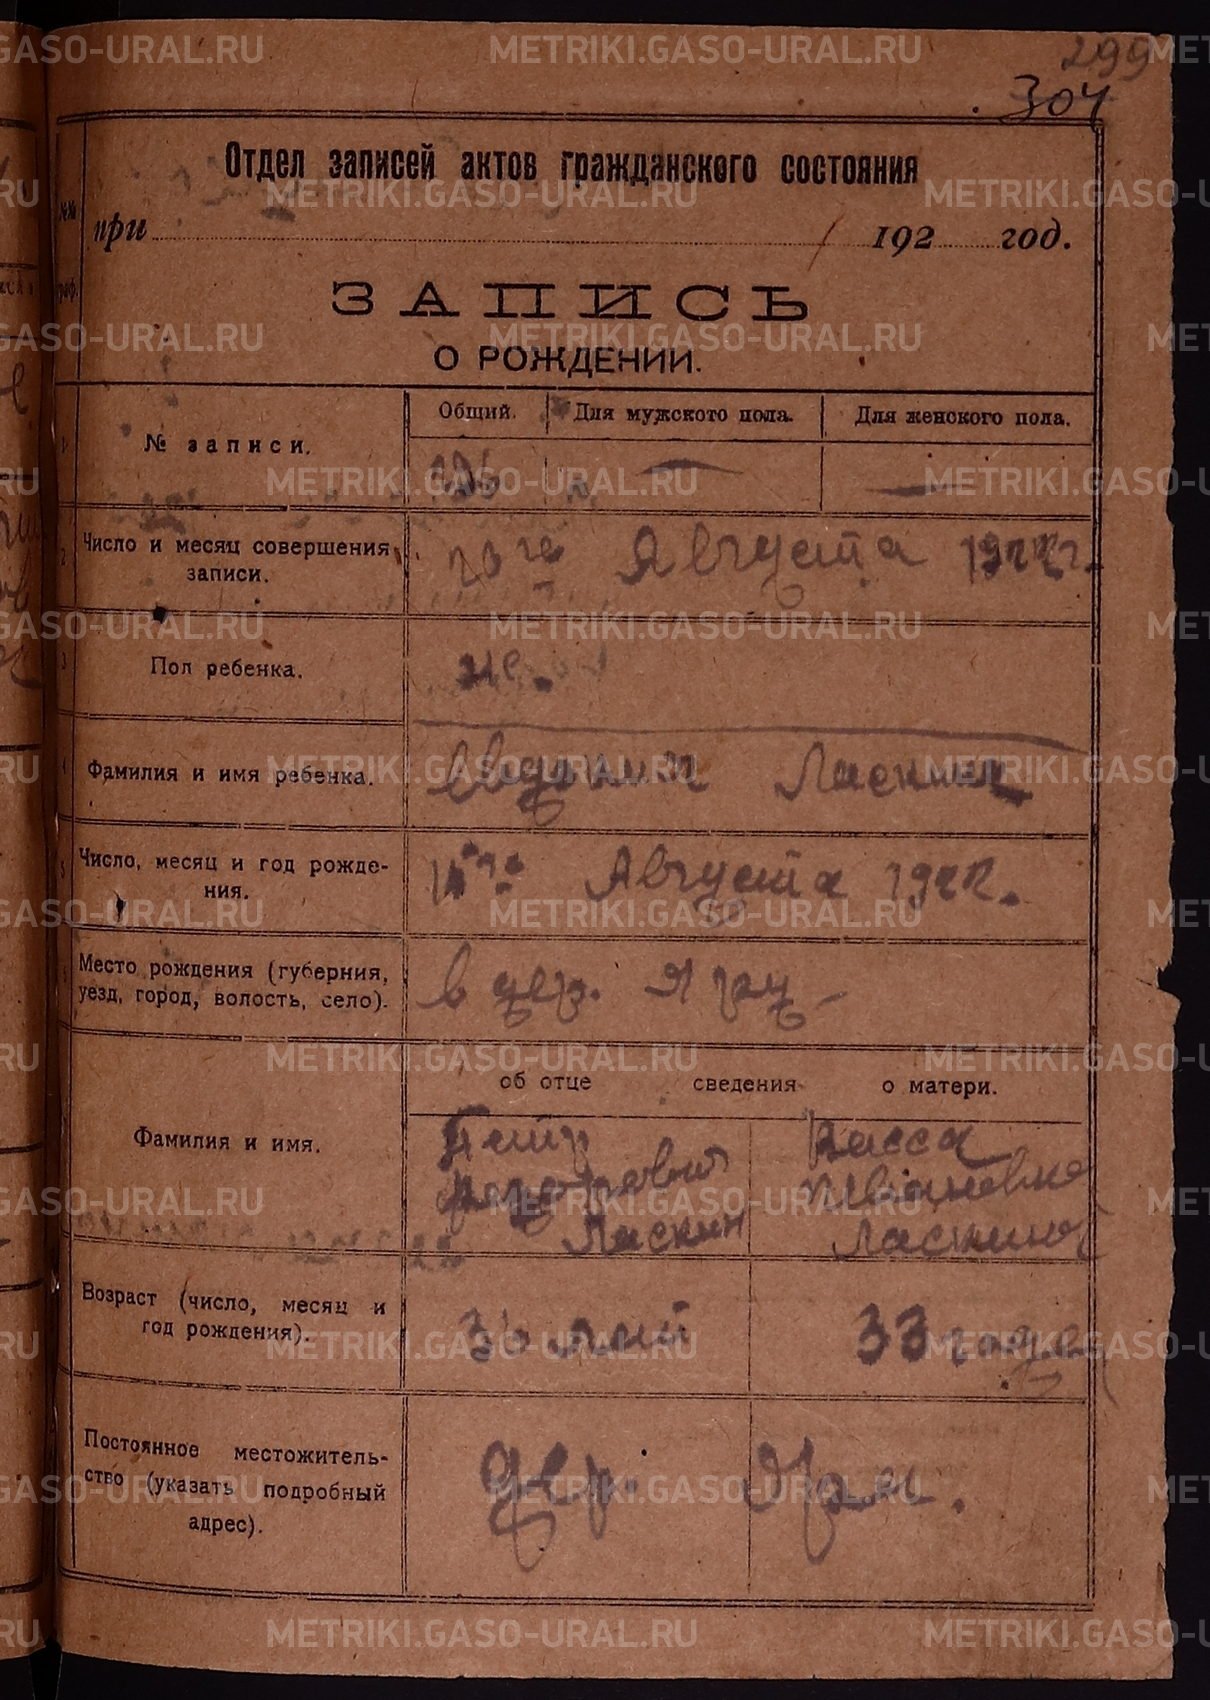 299
304
Отдел записей актов гражданского состояния
№№
при 192 год.
граф.
ЗАПИСЬ
О РОЖДЕНИИ.
Общий. Для мужского пола. Для женского пола.
1
№ записи.
2
Число и месяц совершения записи.
го Августа 1922 г.
3
Пол ребенка.
же.
4
Фамилия и имя ребенка.
Евдокия Ласкина
5
Число, месяц и год рождения.
Августа 1922.
6
Место рождения (губерния,
уезд, город, волость, село).
в дер.
об отце сведения о матери.
Фамилия и имя.
Петр Васса
Федорович Ивановна
Ласкин Ласкина
Возраст (число, месяц и
год рождения).
лет 33 года
Постоянное местожитель-
ство (указать подробный
адрес).
дер.
METRIKI.GASO-URAL.RU